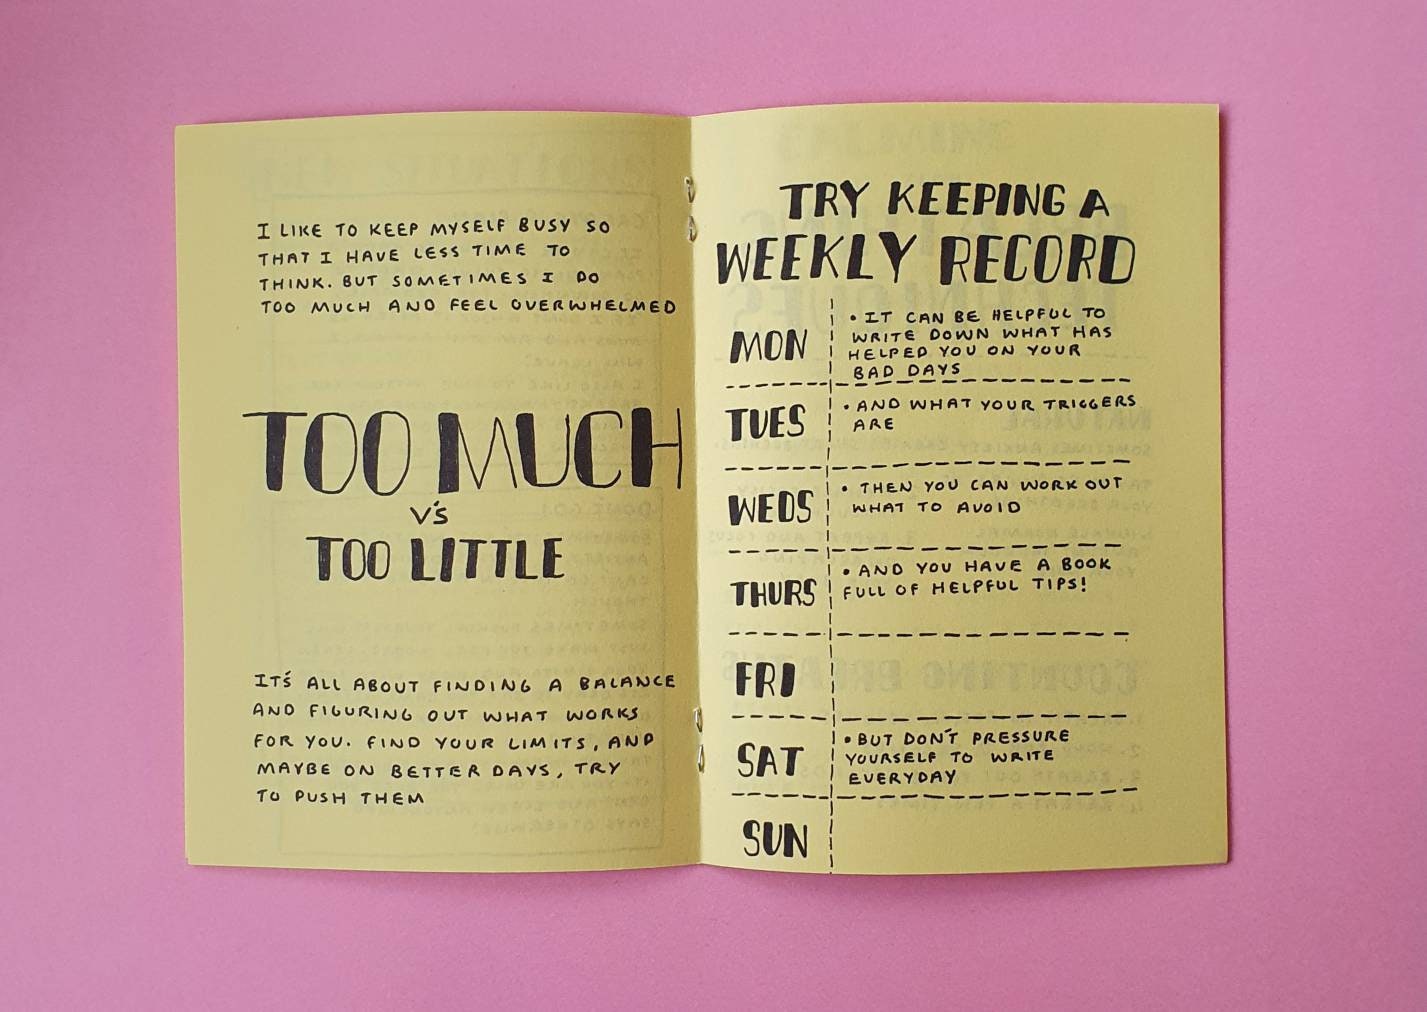 I LIKE TO KEEP MYSELF BUSY SO
THAT I HAVE LESS TIME TO
THINK. BUT SOMETIMES I DO
TOO MUCH AND FEEL OVERWHELMED
TOO MUCH
V'S
TOO LITTLE
IT'S ALL ABOUT FINDING A BALANCE
AND FIGURING OUT WHAT WORKS
FOR YOU. FIND YOUR LIMITS, AND
MAYBE ON BETTER DAYS, TRY
TO PUSH THEM
TRY KEEPING A
WEEKLY RECORD
MON
• IT CAN BE HELPFUL TO
WRITE DOWN WHAT HAS
HELPED YOU ON YOUR
BAD DAYS
TUES
• AND WHAT YOUR TRIGGERS
ARE
WEDS
• THEN YOU CAN WORK OUT
WHAT TO AVOID
THURS
• AND YOU HAVE A BOOK
FULL OF HELPFUL TIPS!
FRI
SAT
• BUT DON'T PRESSURE
YOURSELF TO WRITE
EVERYDAY
SUN